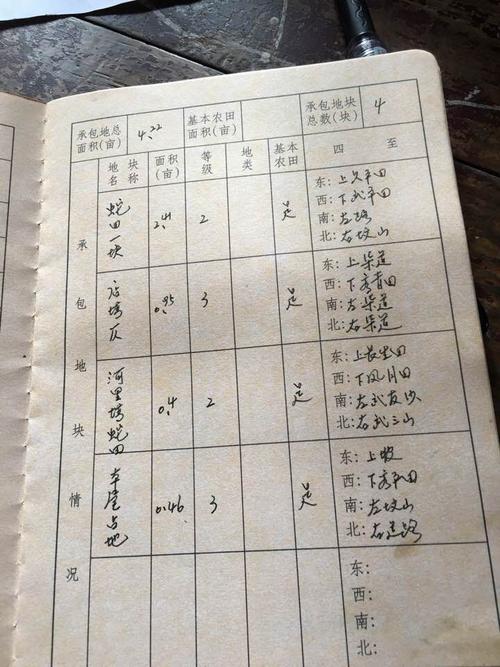 承包地总面积(亩) 4.22 基本农田面积(亩) 承包地块总数(块) 4
承包地块情况
地块名称 面积(亩) 等级 地类 基本农田 四至
蛇田一块 2.4 2 是
东：上 平田
西：下武平田
南：左路
北：右坟山
0.95 3 是
东：上渠道
西：下秀青田
南：左渠道
北：右渠道
河里塆蛇田 0.4 2 是
东：上长里田
西：下风月田
南：左武友沙
北：右武三山
占地 0.46 3 是
东：上坡
西：下秀平田
南：左坟山
北：右 路
东：
西：
南：
北：